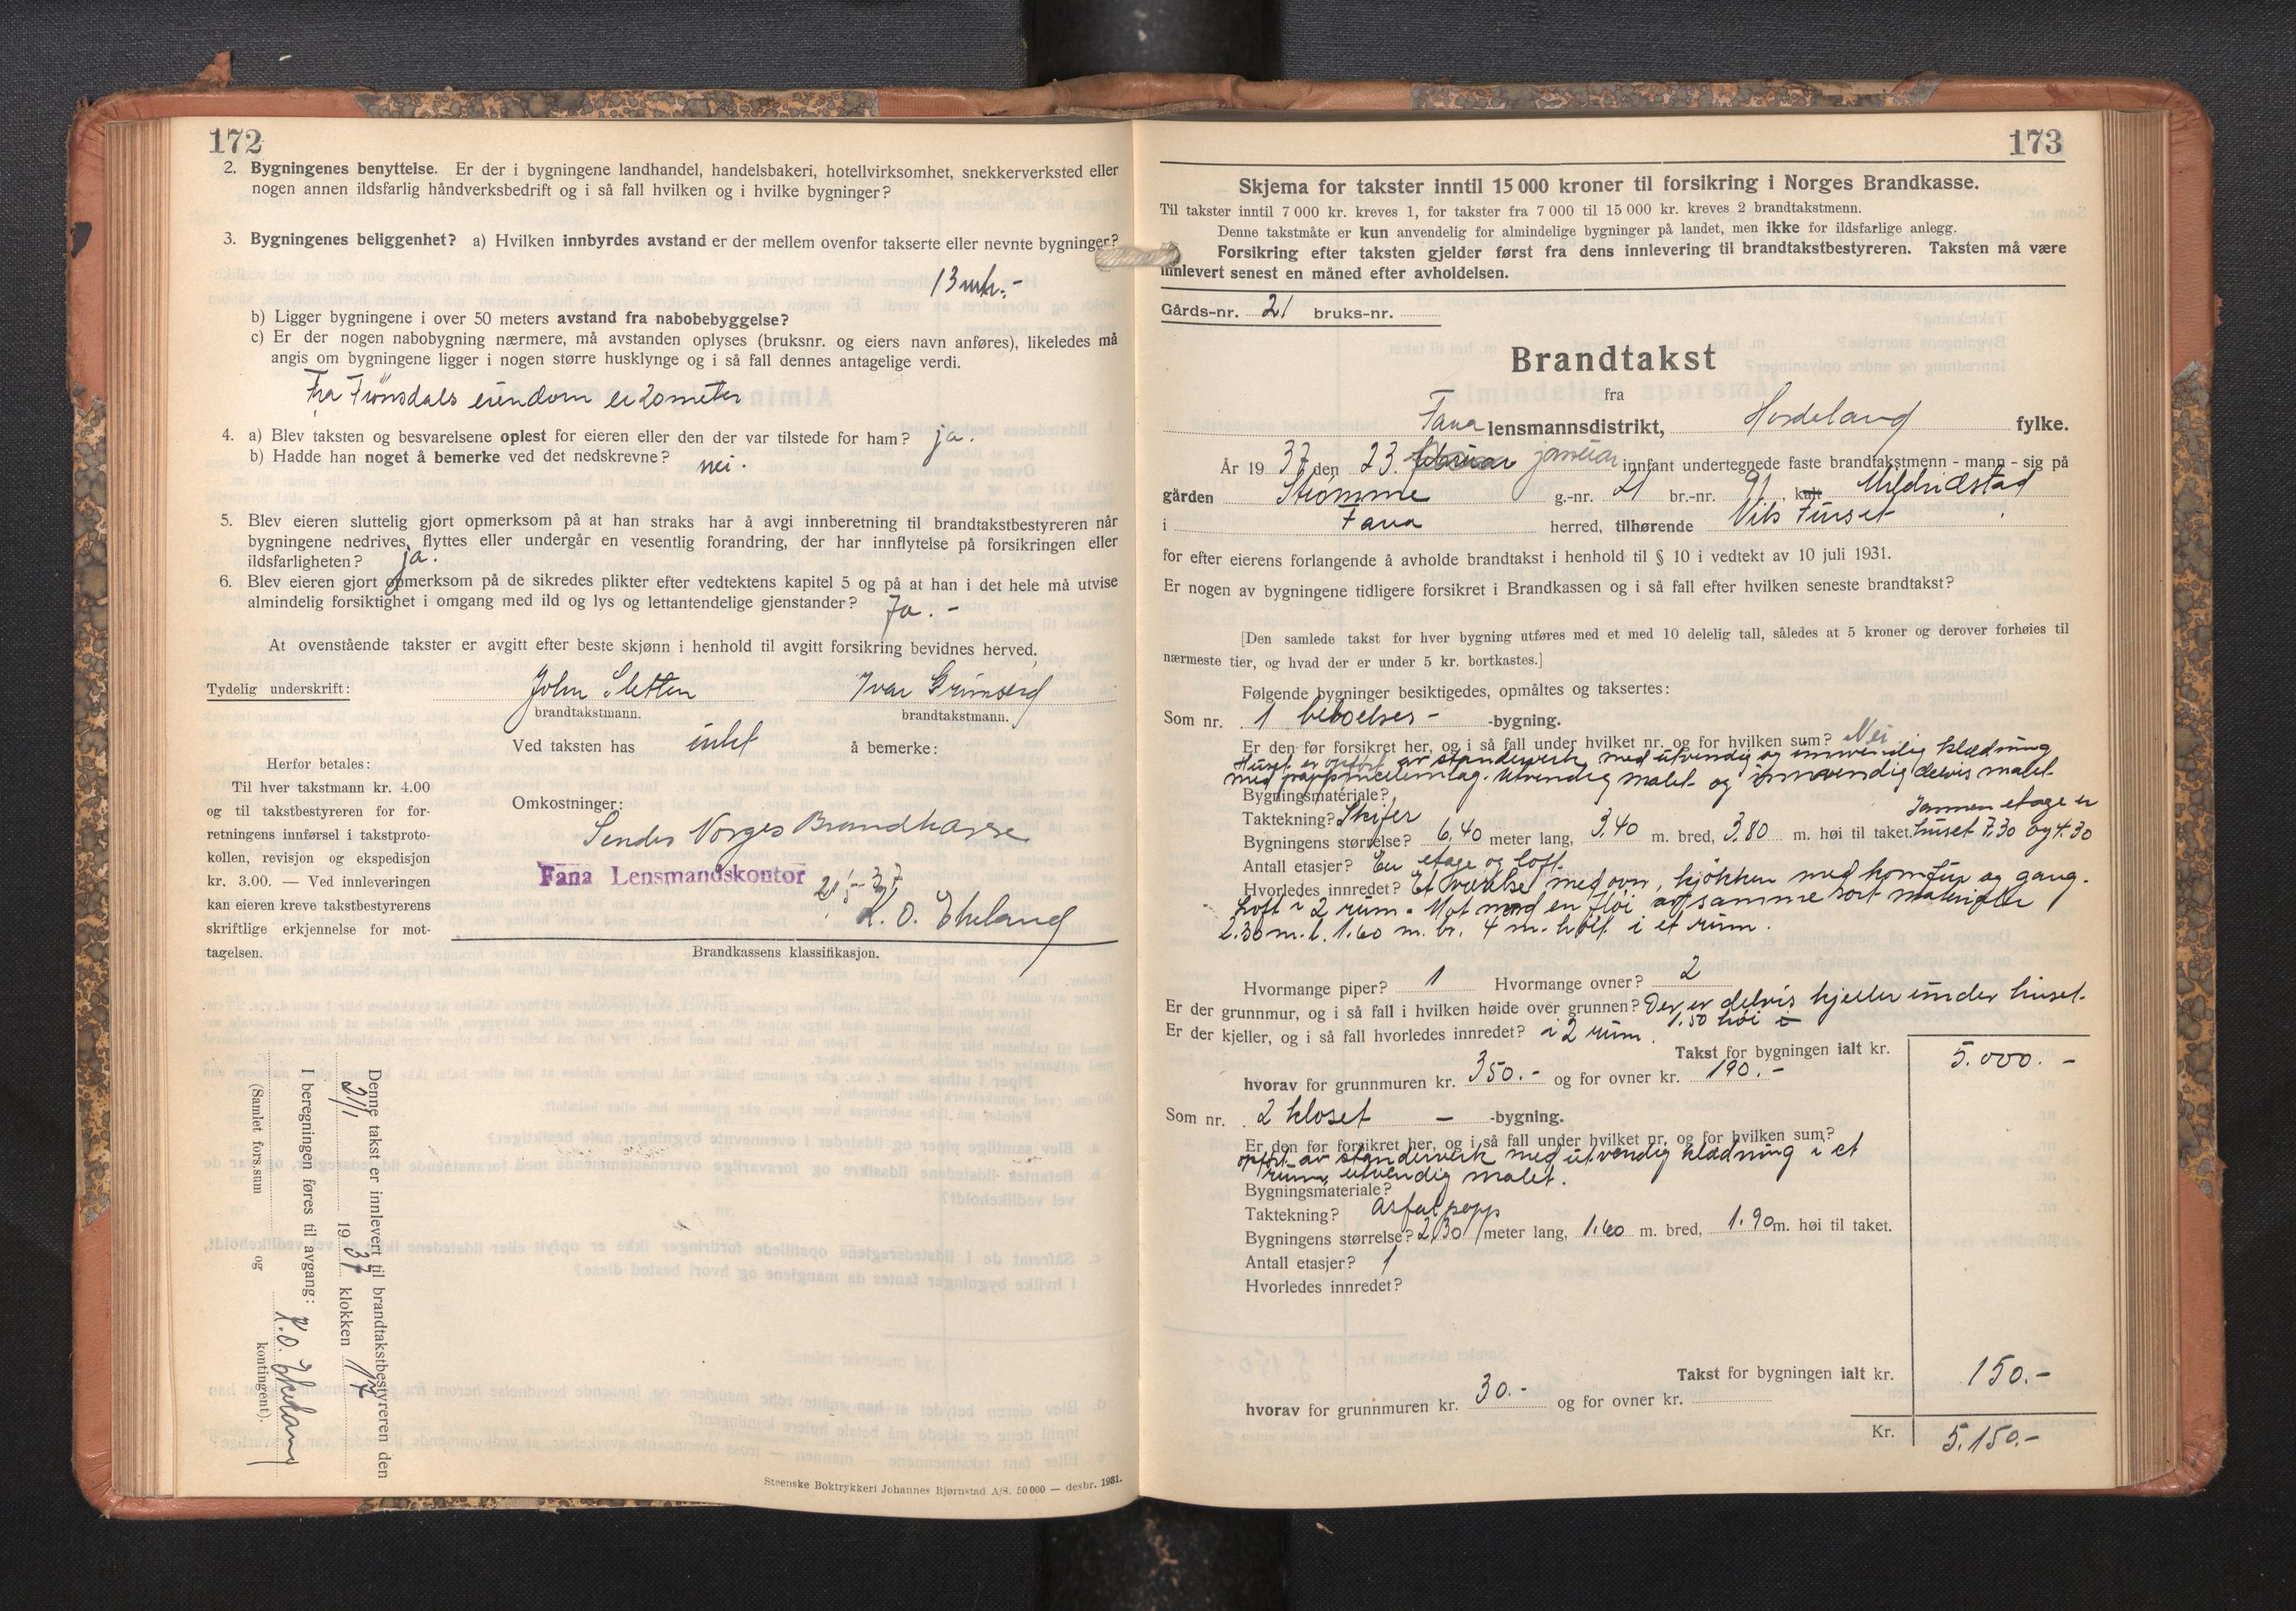 172
2. Bygningenes benyttelse. Er der i bygningene landhandel, handelsbakeri, hotellvirksomhet, snekkerverksted eller
nogen annen ildsfarlig håndverksbedrift og i så fall hvilken og i hvilke bygninger?
3. Bygningenes beliggenhet? a) Hvilken innbyrdes avstand er der mellem ovenfor takserte eller nevnte bygninger?
13 mtr.-
b) Ligger bygningene i over 50 meters avstand fra nabobebyggelse?
c) Er der nogen nabobygning nærmere, må avstanden oplyses (bruksnr. og eiers navn anføres), likeledes må
angis om bygningene ligger i nogen større husklynge og i så fall dennes antagelige verdi.
Fra Frønsdals eiendom er 20 meter
4. a) Blev taksten og besvarelsene oplest for eieren eller den der var tilstede for ham? ja.
b) Hadde han noget å bemerke ved det nedskrevne? nei.
5. Blev eieren sluttelig gjort opmerksom på at han straks har å avgi innberetning til brandtakstbestyreren når
bygningene nedrives, flyttes eller undergår en vesentlig forandring, der har innflytelse på forsikringen eller
ildsfarligheten? ja.
6. Blev eieren gjort opmerksom på de sikredes plikter efter vedtektens kapitel 5 og på at han i det hele må utvise
almindelig forsiktighet i omgang med ild og lys og lettantendelige gjenstander? Ja. -
At ovenstående takster er avgitt efter beste skjønn i henhold til avgitt forsikring bevidnes herved.
Tydelig underskrift: John Sletten Ivar Grimseid
brandtakstmann. brandtakstmann.
Ved taksten has intet å bemerke:
Herfor betales:
Til hver takstmann kr. 4.00
og til takstbestyreren for for-
retningens innførsel i takstproto-
kollen, revisjon og ekspedisjon
kr. 3.00. — Ved innleveringen
kan eieren kreve takstbestyrerens
skriftlige erkjennelse for mot-
tagelsen.
Omkostninger:
Sendes Norges Brandkasse
Fana Lensmandskontor 21/1-37
K. O. Ekeland
Brandkassens klassifikasjon.
Denne takst er innlevert til brandtakstbestyreren den
21/1 1937 klokken 17
I beregningen føres til avgang: K. O. Ekeland
(Samlet fors.sum og kontingent).
Steenske Boktrykkeri Johannes Bjørnstad A/S. 50 000 — desbr. 1931.
173
Skjema for takster inntil 15 000 kroner til forsikring i Norges Brandkasse.
Til takster inntil 7 000 kr. kreves 1, for takster fra 7 000 til 15 000 kr. kreves 2 brandtakstmenn.
Denne takstmåte er kun anvendelig for almindelige bygninger på landet, men ikke for ildsfarlige anlegg.
Forsikring efter taksten gjelder først fra dens innlevering til brandtakstbestyreren. Taksten må være
innlevert senest en måned efter avholdelsen.
Gårds-nr. 21 bruks-nr.
Brandtakst
fra
Fana lensmannsdistrikt, Hordaland fylke.
År 1937 den 23. februar januar innfant undertegnede faste brandtakstmenn - mann - sig på
gården Strømme g.-nr. 21 br.-nr. 91, kalt Mildridstad
i Fana herred, tilhørende Nils Furset
for efter eierens forlangende å avholde brandtakst i henhold til § 10 i vedtekt av 10 juli 1931.
Er nogen av bygningene tidligere forsikret i Brandkassen og i så fall efter hvilken seneste brandtakst?
[Den samlede takst for hver bygning utføres med et med 10 delelig tall, således at 5 kroner og derover forhøies til
nærmeste tier, og hvad der er under 5 kr. bortkastes.]
Følgende bygninger besiktigedes, opmåltes og taksertes:
Som nr. 1 beboelses- -bygning.
Er den før forsikret her, og i så fall under hvilket nr. og for hvilken sum? Nei
Huset er opført av standerverk med utvendig og innvendig klædning
med pappmellemlag. Utvendig malet og innvendig delvis malet
Bygningsmateriale?
Taktekning? Skifer Sammen etage er
Bygningens størrelse? 6,40 meter lang, 3,40 m. bred, 3,80 m. høi til taket. huset 7.30 og 4.30
Antall etasjer? En etage og loft.
Hvorledes innredet? Et værelse med ovn, kjøkken med komfur og gang.
Loft i 2 rum. Mot nord en fløi av samme sort materialer
2.30 m. l. 1.60 m. br. 4 m. høit i et rum.
Hvormange piper? 1 Hvormange ovner? 2
Er der grunnmur, og i så fall i hvilken høide over grunnen? Der er delvis kjeller under huset.
1.50 høi i
Er der kjeller, og i så fall hvorledes innredet? i 2 rum.
Takst for bygningen ialt kr. 5.000.-
hvorav for grunnmuren kr. 350.- og for ovner kr. 190.-
Som nr. 2 kloset - -bygning.
Er den før forsikret her, og i så fall under hvilket nr. og for hvilken sum?
opført av standerverk med utvendig klædning i et
rum, utvendig malet.
Bygningsmateriale?
Taktekning? Asfalpapp
Bygningens størrelse? 2,30 meter lang, 1.60 m. bred, 1.90 m. høi til taket.
Antall etasjer? 1
Hvorledes innredet?
Takst for bygningen ialt kr. 150.-
hvorav for grunnmuren kr. 30.- og for ovner kr.
Kr. 5.150.-